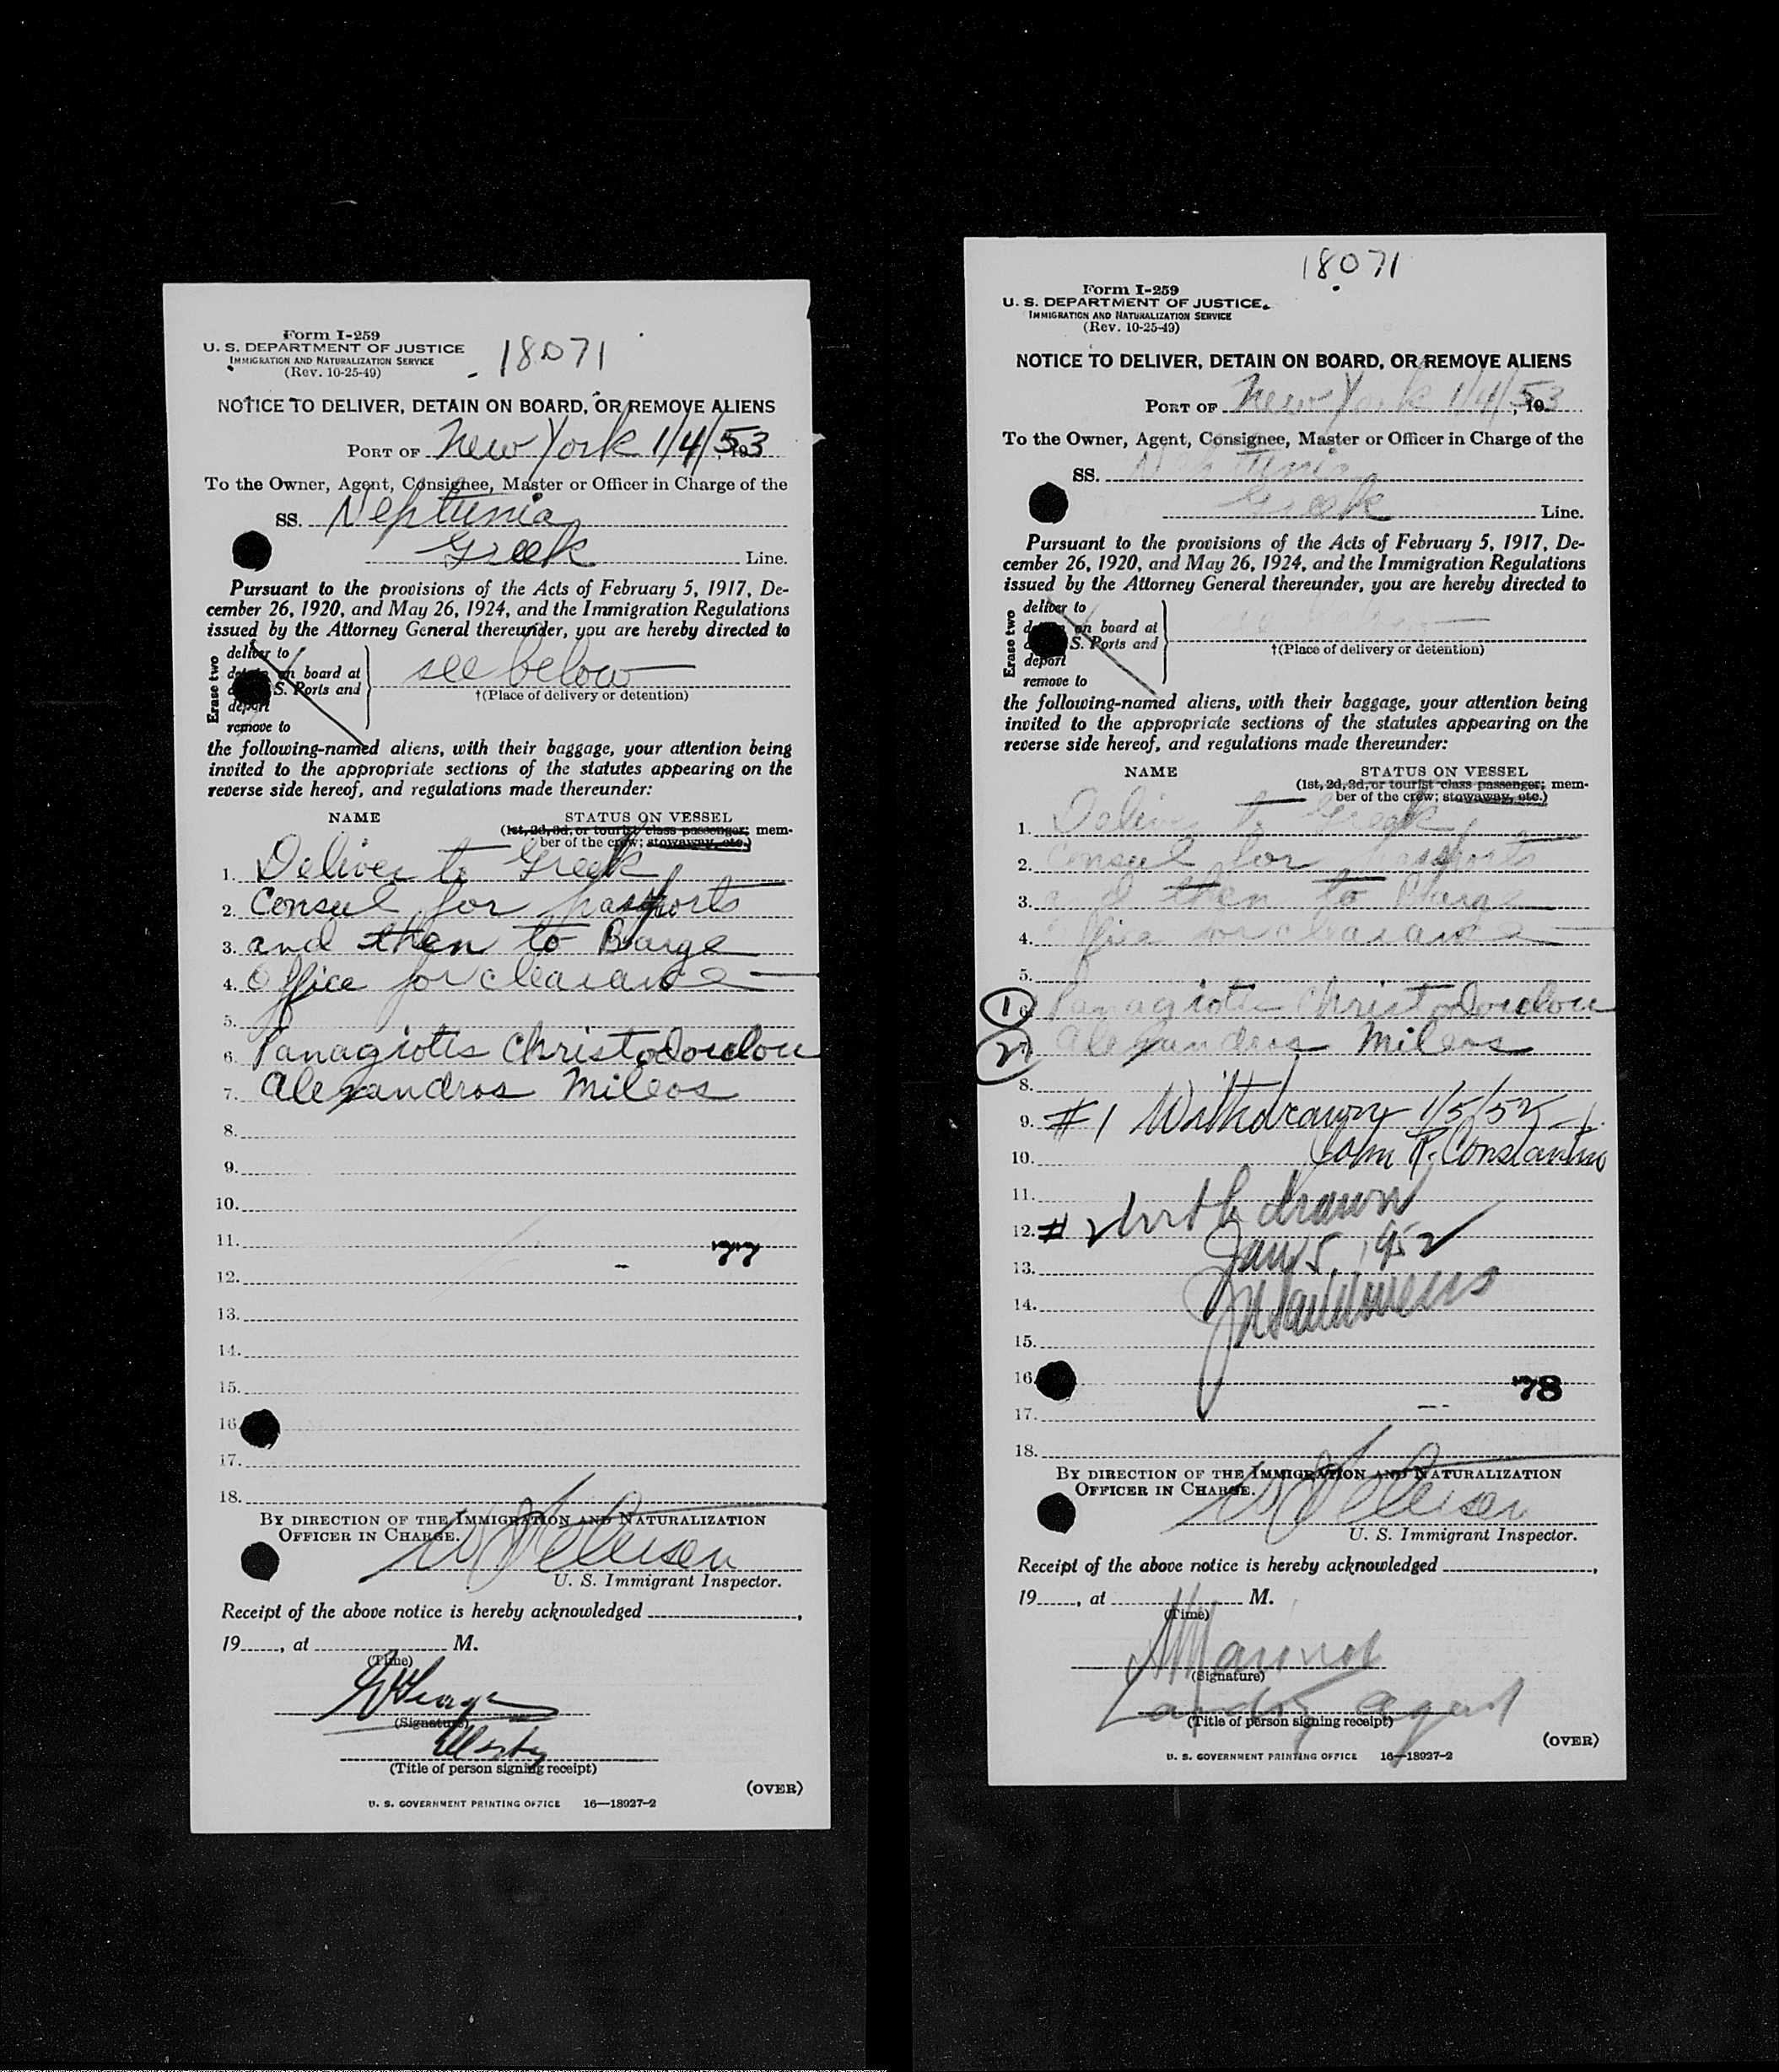 Form I-259
U. S. DEPARTMENT OF JUSTICE
IMMIGRATION AND NATURALIZATION SERVICE
(Rev. 10-25-49)
18071
NOTICE TO DELIVER, DETAIN ON BOARD, OR REMOVE ALIENS
PORT OF New York 1/4/53
To the Owner, Agent, Consignee, Master or Officer in Charge of the
SS. Neptunia
Greek Line.
Pursuant to the provisions of the Acts of February 5, 1917, De-
cember 26, 1920, and May 26, 1924, and the Immigration Regulations
issued by the Attorney General thereunder, you are hereby directed to
Erase two
deliver to
on board at
S. Ports and
deport
remove to
see below
†(Place of delivery or detention)
the following-named aliens, with their baggage, your attention being
invited to the appropriate sections of the statutes appearing on the
reverse side hereof, and regulations made thereunder:
NAME STATUS ON VESSEL
(1st, 2d, 3d, or tourist class passenger; mem-
ber of the crew; stowaway, etc.)
1. Deliver to Greek
2. Consul for passports
3. and then to Barge
4. Office for clearance
5.
6. Panagiotis Christodoulou
7. Alexandros Mileos
8.
9.
10.
11.
12.
13.
14.
15.
16
17.
18.
BY DIRECTION OF THE IMMIGRATION AND NATURALIZATION
OFFICER IN CHARGE.
U. S. Immigrant Inspector.
Receipt of the above notice is hereby acknowledged
19, at M.
(Time)
(Signature)
(Title of person signing receipt)
(OVER)
U. S. GOVERNMENT PRINTING OFFICE 16—18927-2
18071
Form I-259
U. S. DEPARTMENT OF JUSTICE
IMMIGRATION AND NATURALIZATION SERVICE
(Rev. 10-25-49)
NOTICE TO DELIVER, DETAIN ON BOARD, OR REMOVE ALIENS
PORT OF New York 1/4/53
To the Owner, Agent, Consignee, Master or Officer in Charge of the
SS. Neptunia
Greek Line.
Pursuant to the provisions of the Acts of February 5, 1917, De-
cember 26, 1920, and May 26, 1924, and the Immigration Regulations
issued by the Attorney General thereunder, you are hereby directed to
Erase two
deliver to
on board at
S. Ports and
deport
remove to
see below
†(Place of delivery or detention)
the following-named aliens, with their baggage, your attention being
invited to the appropriate sections of the statutes appearing on the
reverse side hereof, and regulations made thereunder:
NAME STATUS ON VESSEL
(1st, 2d, 3d, or tourist class passenger; mem-
ber of the crew; stowaway, etc.)
1. Deliver to Greek
2. Consul for passports
3. and then to Barge
4. Office for clearance
5.
1 6. Panagiotis Christodoulou
2 7. Alexandros Mileos
8.
9. #1 Withdrawn 1/5/52
10. John P. Constantino
11.
12. #2 Withdrawn
13. Jan 5, 1952
14.
15.
16
78
17.
18.
BY DIRECTION OF THE IMMIGRATION AND NATURALIZATION
OFFICER IN CHARGE.
U. S. Immigrant Inspector.
Receipt of the above notice is hereby acknowledged
19, at M.
(Time)
(Signature)
Landing agent
(Title of person signing receipt)
(OVER)
U. S. GOVERNMENT PRINTING OFFICE 16—18927-2